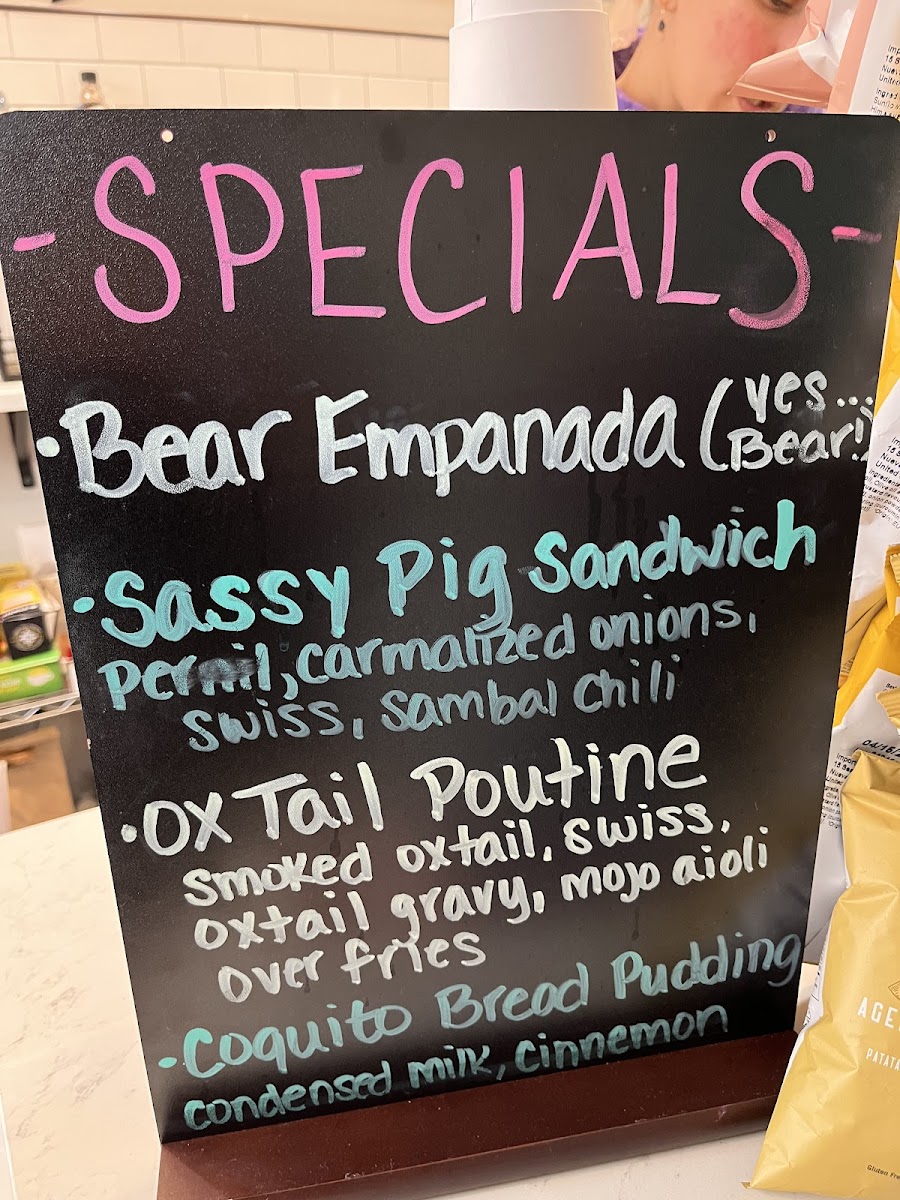 - SPECIALS -
• Bear Empanada (yes... Bear!)
• Sassy Pig Sandwich
pernil, carmalized onions,
swiss, sambal chili
• OX Tail Poutine
smoked oxtail, swiss,
oxtail gravy, mojo aioli
over fries
• Coquito Bread Pudding
condensed milk, cinnemon
AGE
PATATA
Gluten Fre